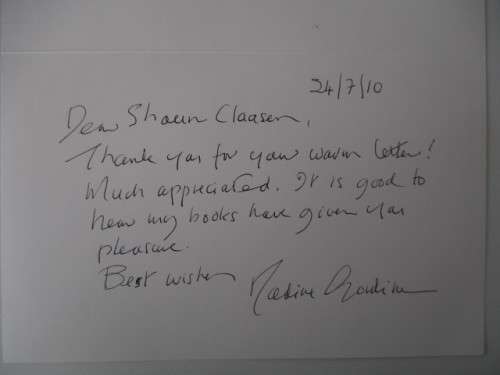 24/7/10
Dear Shaun Claasen,
Thank you for your warm letter!
Much appreciated. It is good to
hear my books have given you
pleasure.
Best wishes Nadine Gordimer